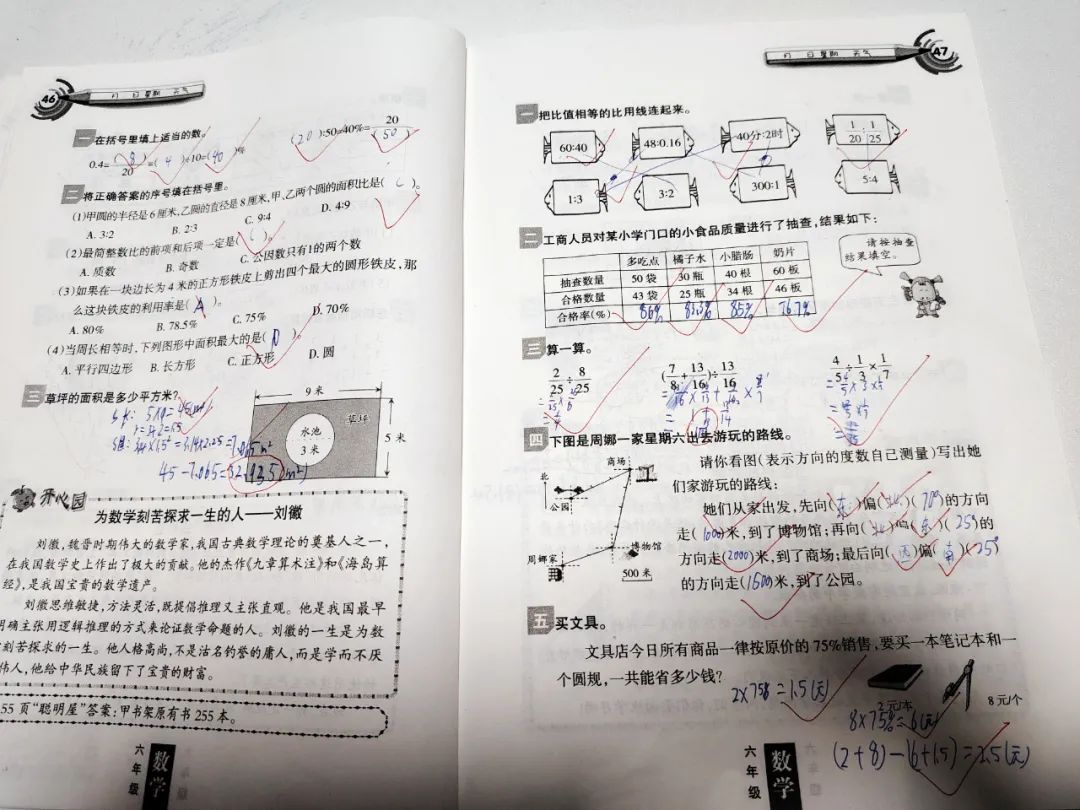 46
月 日 星期 天气
一 在括号里填上适当的数。
0.4=8/20=(4)÷10=(40)% (20):50=40%=20/(50)
二 将正确答案的序号填在括号里。
(1)甲圆的半径是6厘米,乙圆的直径是8厘米,甲、乙两个圆的面积比是(C)。
A. 3:2 B. 2:3 C. 9:4 D. 4:9
(2)最简整数比的前项和后项一定是(C)。
A. 质数 B. 奇数 C. 公因数只有1的两个数
(3)如果在一块边长为4米的正方形铁皮上剪出四个最大的圆形铁皮,那
么这块铁皮的利用率是(A)。
A. 80% B. 78.5% C. 75% D. 70%
(4)当周长相等时,下列图形中面积最大的是(D)。
A. 平行四边形 B. 长方形 C. 正方形 D. 圆
三 草坪的面积是多少平方米?
9米
草坪
水池
3米
5米
开心园
为数学刻苦探求一生的人——刘徽
刘徽,魏晋时期伟大的数学家,我国古典数学理论的奠基人之一,
在我国数学史上作出了极大的贡献。他的杰作《九章算术注》和《海岛算
经》,是我国宝贵的数学遗产。
刘徽思维敏捷,方法灵活,既提倡推理又主张直观。他是我国最早
明确主张用逻辑推理的方式来论证数学命题的人。刘徽的一生是为数
学刻苦探求的一生。他人格高尚,不是沽名钓誉的庸人,而是学而不厌
伟人,他给中华民族留下了宝贵的财富。
55页“聪明屋”答案:甲书架原有书255本。
六年级 数学
47
月 日 星期 天气
一 把比值相等的比用线连起来。
60:40 48:0.16 40分:2时 1/20:1/25
1:3 3:2 300:1 5:4
二 工商人员对某小学门口的小食品质量进行了抽查,结果如下:
多吃点 橘子水 小腊肠 奶片
抽查数量 50袋 30瓶 40根 60板
合格数量 43袋 25瓶 34根 46板
合格率(%) 86% 83.3% 85% 76.7%
请按抽查
结果填空。
三 算一算。
2/25÷8/25 (7/8+13/16)÷13/16 4/5÷1/3×1/7
四 下图是周娜一家星期六出去游玩的路线。
北
商场
公园
周娜家
博物馆
500米
请你看图(表示方向的度数自己测量)写出她
们家游玩的路线:
她们从家出发,先向(东)偏(北)(70°)的方向
走(1000)米,到了博物馆;再向(北)偏(东)(25°)的
方向走(2000)米,到了商场;最后向(西)偏(南)(25°)
的方向走(1500)米,到了公园。
五 买文具。
文具店今日所有商品一律按原价的75%销售,要买一本笔记本和一
个圆规,一共能省多少钱?
2×75%=1.5(元)
2元/本
8元/个
8×75%=6(元)
(2+8)-(6+1.5)=2.5(元)
六年级 数学